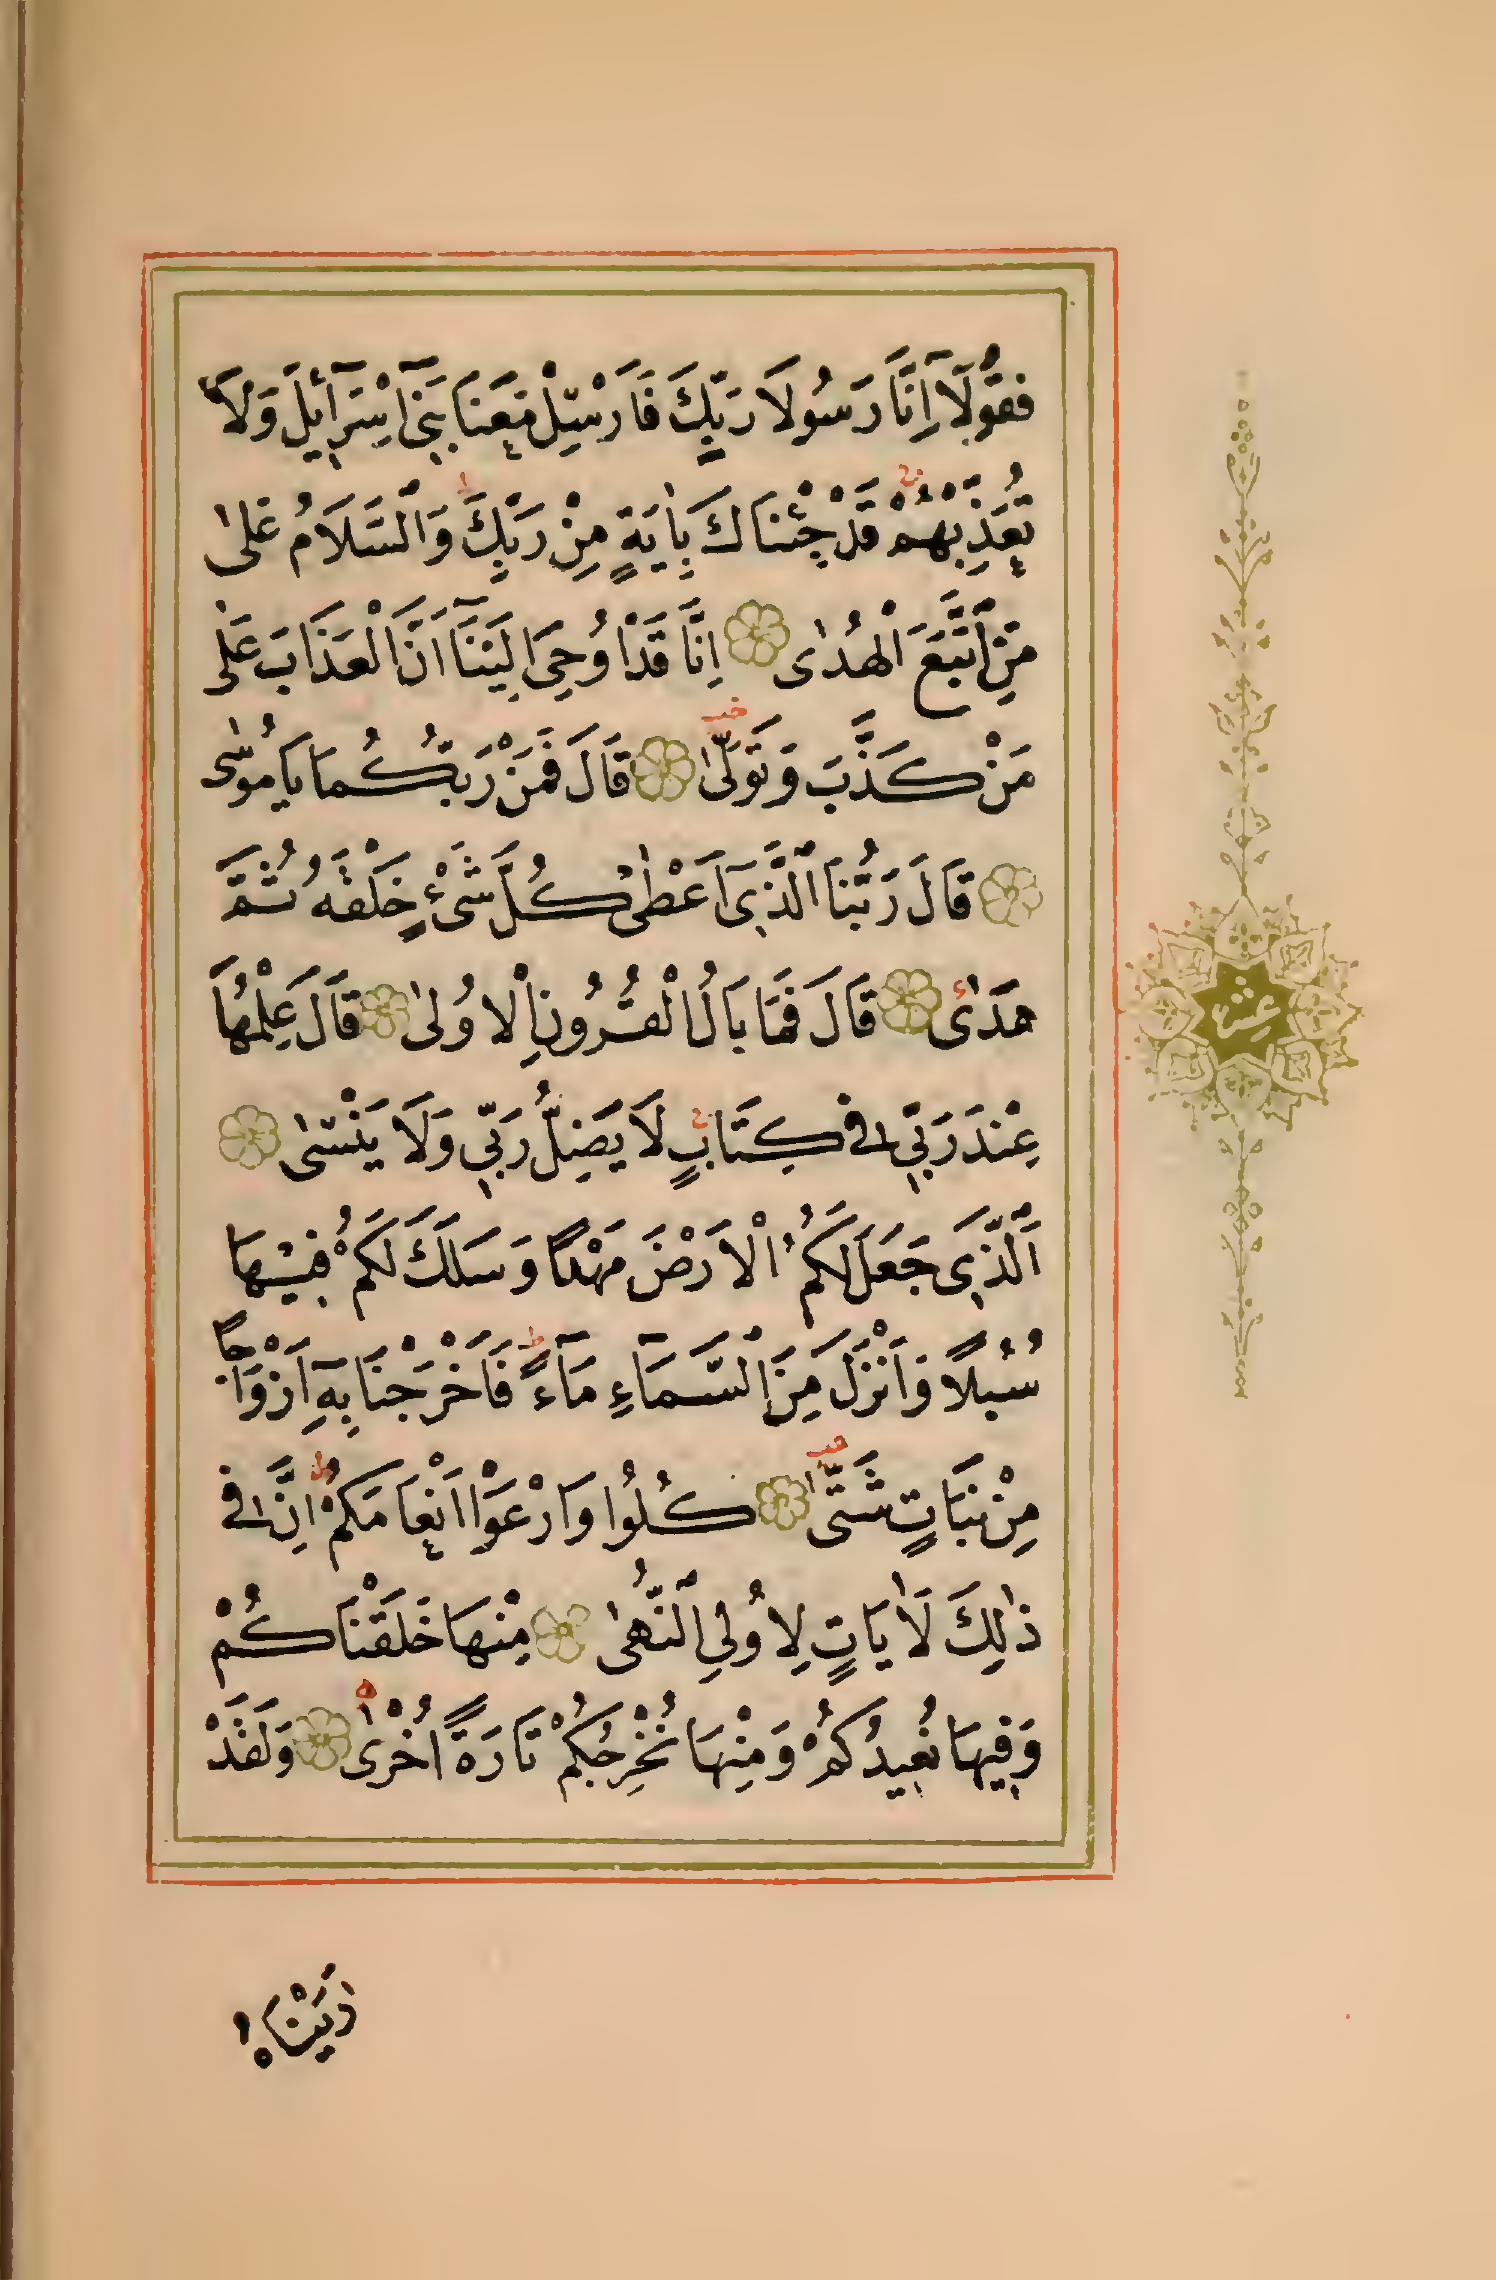 فَقُولَٓا اِنَّا رَسُولَا رَبِّكَ فَاَرْسِلْ مَعَنَا بَنٖٓى اِسْرَٓائٖلَ وَلَا
تُعَذِّبْهُمْ قَدْ جِئْنَاكَ بِاٰيَةٍ مِنْ رَبِّكَ وَالسَّلَامُ عَلٰى
مَنِ اتَّبَعَ الْهُدٰى اِنَّا قَدْ اُوحِىَ اِلَيْنَٓا اَنَّ الْعَذَابَ عَلٰى
مَنْ كَذَّبَ وَتَوَلّٰى قَالَ فَمَنْ رَبُّكُمَا يَا مُوسٰى
قَالَ رَبُّنَا الَّذٖٓى اَعْطٰى كُلَّ شَىْءٍ خَلْقَهُ ثُمَّ
هَدٰى قَالَ فَمَا بَالُ الْقُرُونِ الْاُولٰى قَالَ عِلْمُهَا
عِنْدَ رَبّٖى فٖى كِتَابٍ لَا يَضِلُّ رَبّٖى وَلَا يَنْسٰى
اَلَّذٖى جَعَلَ لَكُمُ الْاَرْضَ مَهْدًا وَسَلَكَ لَكُمْ فٖيهَا
سُبُلًا وَاَنْزَلَ مِنَ السَّمَٓاءِ مَٓاءً فَاَخْرَجْنَا بِهٖٓ اَزْوَاجًا
مِنْ نَبَاتٍ شَتّٰى كُلُوا وَارْعَوْا اَنْعَامَكُمْ اِنَّ فٖى
ذٰلِكَ لَاٰيَاتٍ لِاُولِى النُّهٰى مِنْهَا خَلَقْنَاكُمْ
وَفٖيهَا نُعٖيدُكُمْ وَمِنْهَا نُخْرِجُكُمْ تَارَةً اُخْرٰى وَلَقَدْ
عشر
اَرَيْنَاهُ